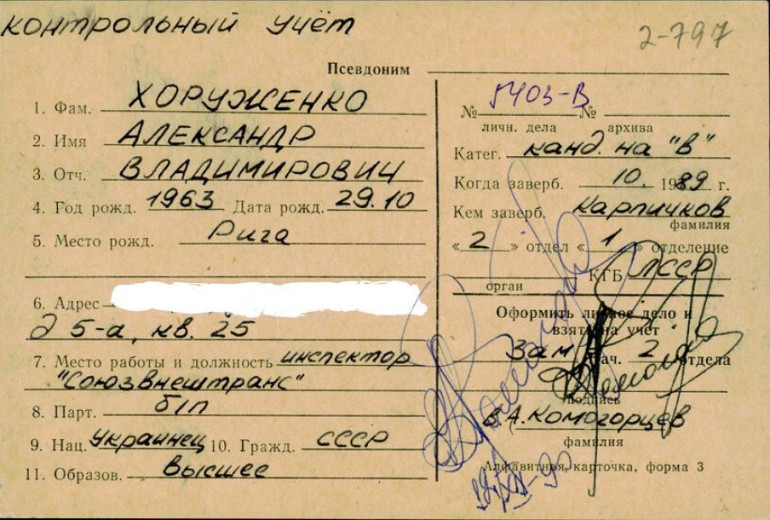 контрольный учёт
2-797
Псевдоним
1. Фам. ХОРУЖЕНКО
2. Имя АЛЕКСАНДР
3. Отч. ВЛАДИМИРОВИЧ
4. Год рожд. 1963 Дата рожд. 29.10
5. Место рожд. Рига
6. Адрес
д 5-а, кв. 25
7. Место работы и должность инспектор
"Союзвнештранс"
8. Парт. б/п
9. Нац. Украинец 10. Гражд. СССР
11. Образов. высшее
№ 5403-В №
личн. дела архива
Катег. канд. на "В"
Когда заверб. 10. 1989 г.
Кем заверб. Карпичков
фамилия
« 2 » отдел « 1 » отделение
КГБ ЛССР
орган
Оформить личное дело и
взять на учет
Зам Нач. 2 отдела
подпись
В.А. Комогорцев
фамилия
Алфавитная карточка, форма 3